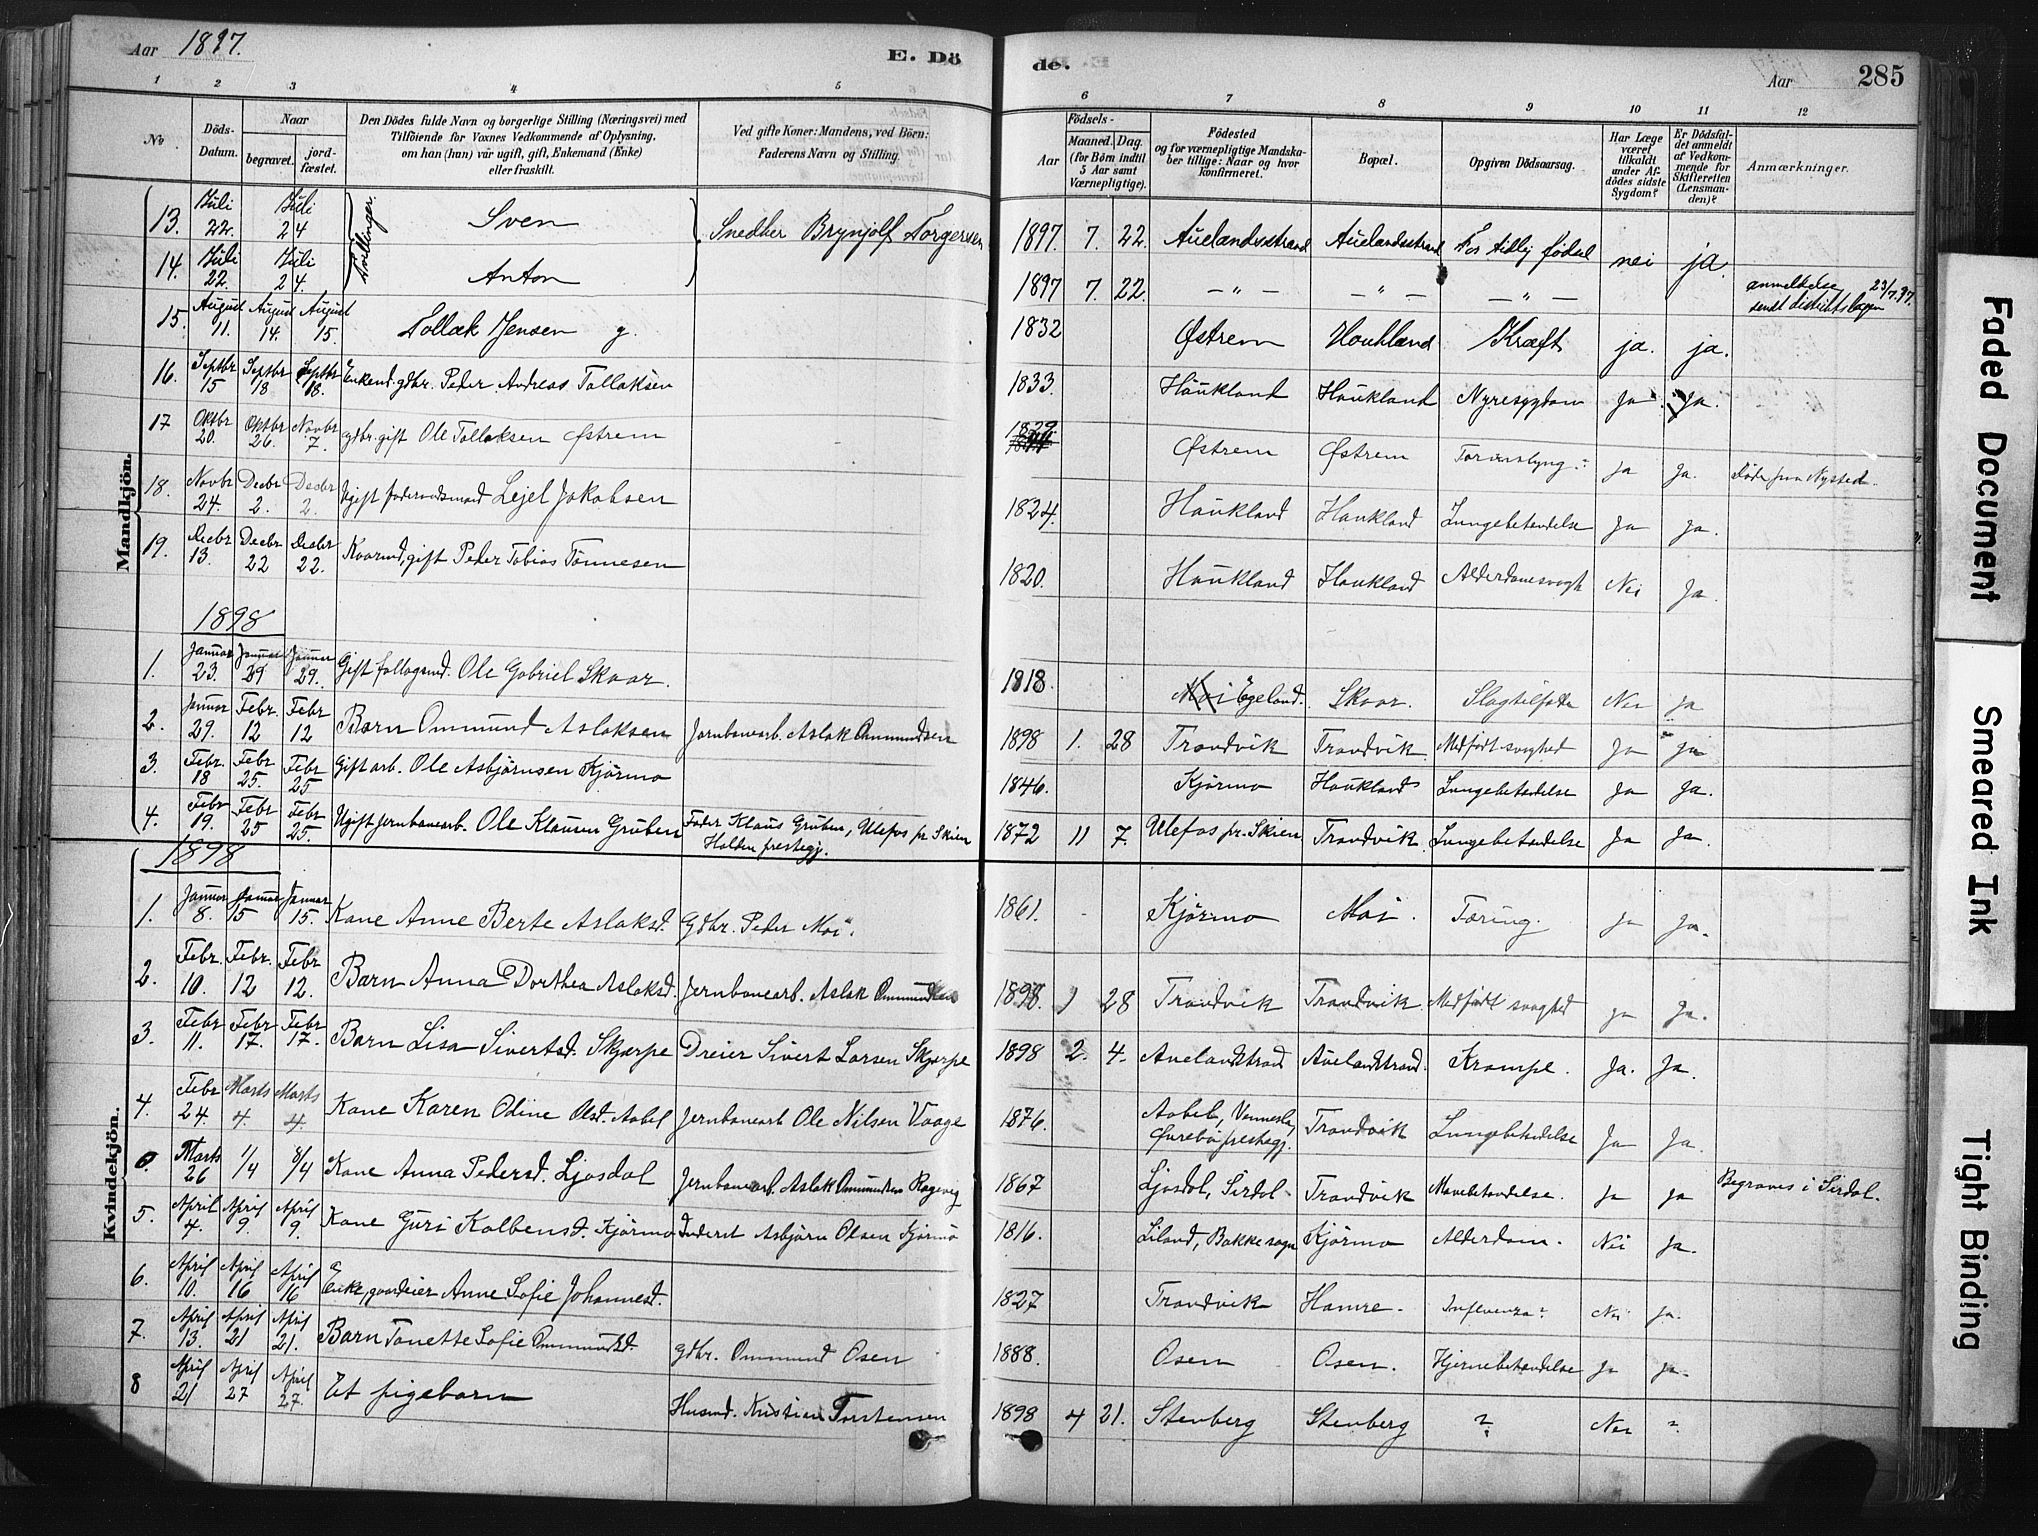 Aar 1897. E. Dö
de. Aar 285
1 2 3 4 5
6 7 8 9 10 11 12
No. Döds-Datum. Naar begravet. jordfæstet. Den Dödes fulde Navn og borgerlige Stilling (Næringsvei) med Tilföiende for Voxnes Vedkommende af Oplysning, om han (hun) vår ugift, gift, Enkemand (Enke) eller fraskilt. Ved gifte Koner: Mandens, ved Börn: Faderens Navn og Stilling.
Födsels- Aar Maaned. Dag. (for Börn indtil 5 Aar samt Værnepligtige). Födested og for værnepligtige Mandskaber tillige: Naar og hvor konfirmeret. Bopæl. Opgiven Dödsaarsag. Har Læge været tilkaldt under Afdödes sidste Sygdom? Er Dödsfuldet anmeldt af Vedkommende for Skifteretten (Lensmanden)? Anmærkninger.
Mandkjön.
13. Juli 22. Juli 24 Tvillinger. Sven Snedker Brynjolf Torgersen 1897. 7. 22. Auelandsstrand Auelandsstrand For tidlig fødsel nei ja.
14. Juli 22. Juli 24. Anton 1897 7. 22. — " — — " — — " — anmeldelse 23/7 97. sendt distriktslægen
15. August 11. August 14. August 15. Tollak Jensen g. 1832 Østrem Houkland Kræft ja. ja.
16. Septbr 15 Septbr 18 Septbr 18. Enkemd. gdbr. Peder Andreas Tollaksen 1833. Haukland Haukland Nyresygdom Ja Ja.
17 Oktbr 20. Oktbr 26. Novbr 7 gdbr. gift Ole Tollaksen Østrem 1829. Østrem Østrem Ja Ja. Døde paa Nysted.
18. Novbr 24. Decbr 2. Decbr 2. Ugift Lejel Jakobsen 1824. Haukland Haukland Lungebetændelse Ja Ja.
19. Decbr 13. Decbr 22 Decbr 22. Kaarmd, gift Peder Tobias Tønnesen 1820. Haukland Haukland Alderdomssvagh Nei Ja.
1898
1. Januar 23. Januar 29 Januar 29. Gift follogmd. Ole Gabriel Skaar. 1818. Egeland. Skaar. Slagtilfælde Nei Ja
2. Januar 29. Febr. 12 Febr 12 Barn Ommund Aslaksen Jernbanearb. Aslak Ommundsen 1898 1. 28 Trondvik Trondvik Medfødt svaghed Ja Ja
3. Febr. 18 Febr 25. Febr 25 Gift arb. Ole Asbjørnsen Kjørmo 1846. Kjørmo Haukland Lungebetændelse Ja Ja.
4. Febr 19. Febr 25 Febr 25. Ugift jernbanearb. Ole Klausen Gruben Fader Klaus Gruben, Ulefos pr. Skien Holden prestegj. 1872 11 7. Ulefos pr. Skien Trondvik Lungebetændelse Ja Ja.
1898
Kvindekjön.
1. Januar 8. Januar 15 Januar 15. Kone Anne Berte Aslaksd. Gdbr. Peder Moi. 1861. Kjørmo Moi. Tæring. Ja Ja.
2. Febr. 10. Febr. 12 Febr 12. Barn Anna Dorthea Aslaksd. Jernbanearb. Aslak Ommundsen 1898. 1 28 Trondvik Trondvik Medfødt svaghed Ja Ja.
3. Febr 11. Febr 17. Febr 17. Barn Lisa Sivertsd. Skjærpe Dreier Sivert Larsen Skjærpe 1898 2. 4. Auelandstrand Auelandstrand. Krampe. Ja. Ja.
4. Febr 24. Marts 4. Marts 4. Kone Karen Odine Olsd. Aabel Jernbanearb Ole Nilsen Vaage 1876. Aabel, Vennesla, Øvrebø prestegj. Trondvik Lungebetændelse Ja Ja.
0. Marts 26 1/4 8/4 Kone Anna Pedersd. Ljosdal Jernbanearb. Aslak Ommundsen Ragevig 1867 Ljosdal, Sirdal. Trondvik Mavebetændelse. Ja Ja Begraves i Sirdal.
5. April 4. April 9. April 9. Kone Guri Kolbensd. Kjørmo Inderst Asbjørn Olsen Kjørmo 1816. Liland, Bakke sogn Kjørmo Alderdom. Nei Ja.
6. April 10. April 16 April 16 Enke, gaardeier Anne Sofie Johannesd. 1827 Trondvik Hamre. Influenza? Nei Ja.
7. April 13. April 21 April 21. Barn Tonette Sofie Ommundsd. gdbr. Ommund Osen 1888. Osen Osen. Hjernebetændelse Ja Ja.
8 April 21 April 27 April 27. Et pigebarn Husmd. Kristian Torstensen 1898 4 21. Stenberg Stenberg ? Nei ?
Faded Document
Smeared Ink
Tight Binding